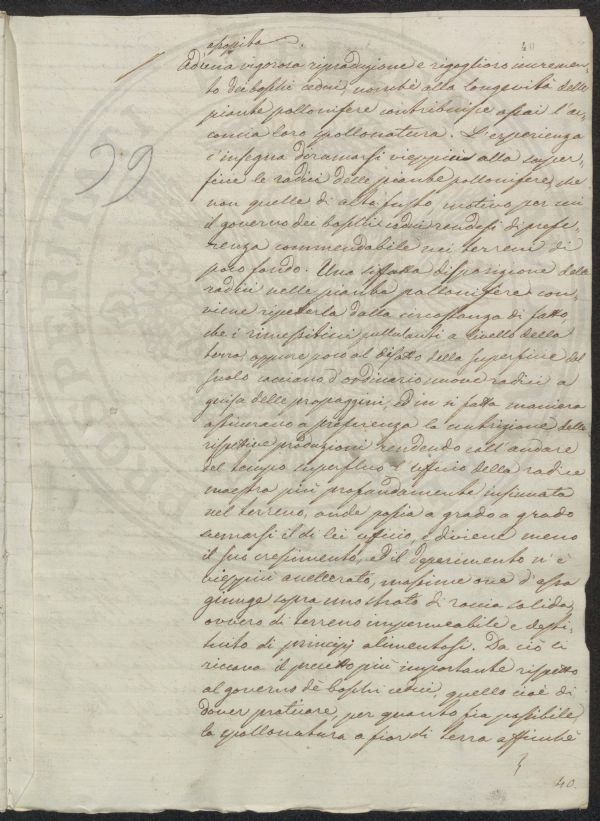 40
Ad una vigorosa riproduzione e rigoglioso incremen-
to dei boschi cedui, nonchè alla longevità delle
piante pollonifere contribuisce assai l'ac-
concia loro spollonatura. L'esperienza
c'insegna diramarsi vieppiù alla super-
ficie le radici delle piante pollonifere, che
non quelle di alto fusto, motivo per cui
il governo dei boschi cedui rendesi di prefe-
renza commendabile nei terreni di
poco fondo. Una siffatta disposizione delle
radici nelle piante pollonifere con-
viene ripeterla dalla circostanza di fatto
che i rimessiticci pullulanti a livello della
terra, oppure poco al disotto della superficie del
suolo cacciano d'ordinario nuove radici a
guisa delle propaggini, ed in sì fatta maniera
assicurano a preferenza la nutrizione delle
rispettive produzioni rendendo coll'andare
del tempo superfluo l'ufficio della radice
maestra più profondamente insinuata
nel terreno, onde passa a grado a grado
scemarsi il di lei uficio, e diviene meno
il suo crescimento, ed il deperimento n'è
vieppiù accellerato, massime ove d'essa
giunge sopra uno strato di roccia solida,
ovvero di terreno impermeabile e desti-
tuito di principj alimentosi. Da ciò ci
ricava il precetto più importante rispetto
al governo dè boschi cedui, quello cioè di
dover praticare, per quanto sia possibile,
la spollonatura a fior di terra affinchè
40.
PROSPERITAS